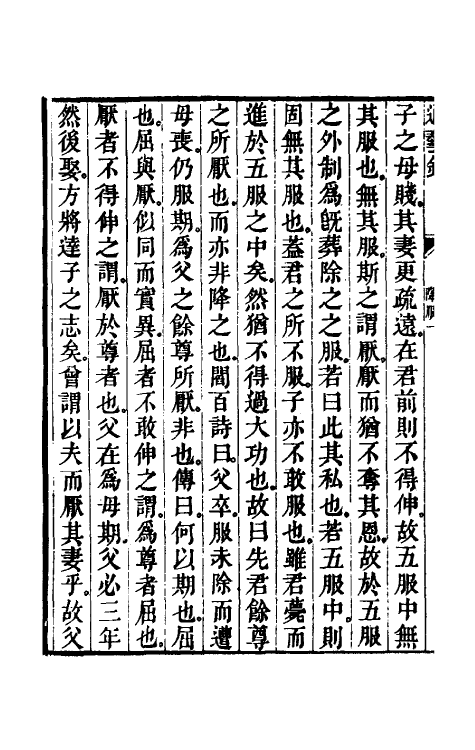 子之母賤其妻更疏遠在君前則不得伸故五服中無
其服也無其服斯之謂厭厭而猶不奪其恩故於五服
之外制為旣葬除之之服若曰此其私也若五服中則
固無其服也蓋君之所不服子亦不敢服也雖君薨而
進於五服之中矣然猶不得過大功也故曰先君餘尊
之所厭也而亦非降之也閻百詩曰父卒服未除而遭
母喪仍服期為父之餘尊所厭非也傳曰何以期也屈
也屈與厭似同而實異屈者不敢伸之謂為尊者屈也
厭者不得伸之謂厭於尊者也父在為母期父必三年
然後娶方將達子之志矣曾謂以夫而厭其妻乎故父